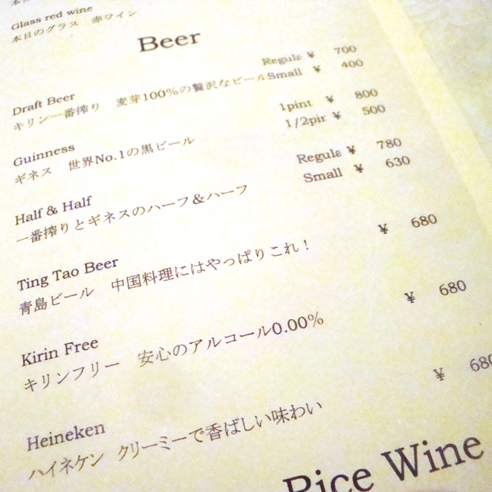 Glass red wine
本日のグラス 赤ワイン
Beer
Draft Beer Regula ¥ 700
キリン一番搾り 麦芽100%の贅沢なビール Small ¥ 400
Guinness 1pint ¥ 800
ギネス 世界No.1の黒ビール 1/2pir ¥ 500
Half & Half Regula ¥ 780
一番搾りとギネスのハーフ&ハーフ Small ¥ 630
Ting Tao Beer ¥ 680
青島ビール 中国料理にはやっぱりこれ!
Kirin Free ¥ 680
キリンフリー 安心のアルコール0.00%
Heineken ¥ 680
ハイネケン クリーミーで香ばしい味わい
Rice Wine